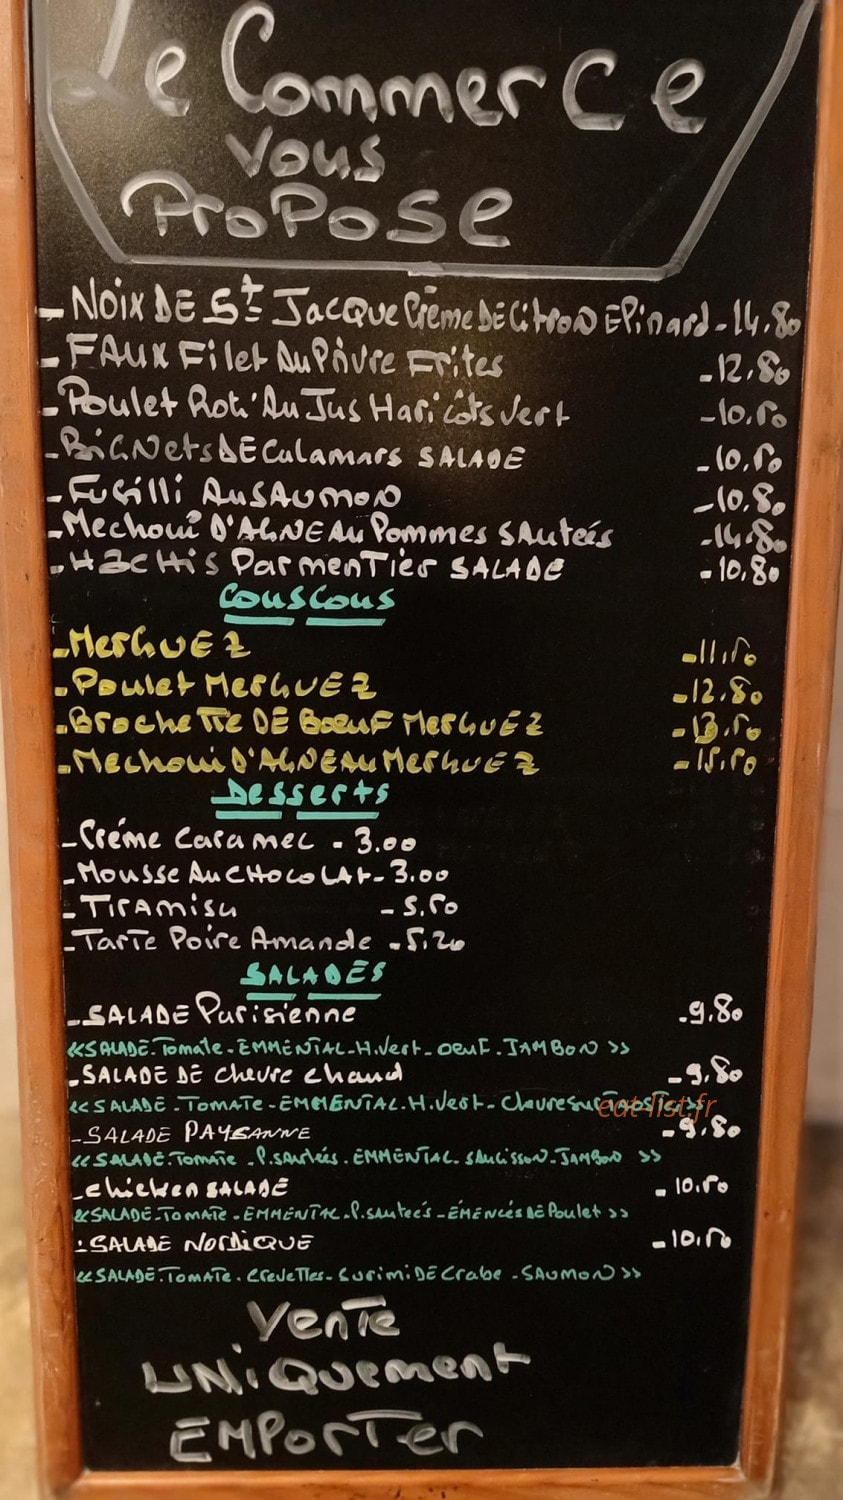 Le Commerce
Vous
Propose
- Noix DE St Jacque Crème DE Citron Epinard - 14.80
- FAUX Filet Au Poivre Frites - 12.80
- Poulet Roti Au Jus Haricots Vert - 10.50
- BiGNets DE Calamars SALADE - 10.50
- Fusilli Au SAUMON - 10.80
- Mechoui D'AGNEAu Pommes SAuteés - 14.80
- HACHis ParmenTier SALADE - 10.80
Couscous
- MerGUEZ - 11.50
- Poulet MerGUEZ - 12.80
- BrocheTTE DE BœuF MerGUEZ - 13.50
- Mechoui D'AGNEAu MerGUEZ - 15.50
Desserts
- Créme Caramel - 3.00
- Mousse Au CHOCOLAt - 3.00
- Tiramisu - 5.50
- Tarte Poire Amande - 5.20
SALADES
- SALADE Parisienne - 9.80
«SALADE.Tomate - EMMENTAL - H.Vert - oeuF. JAMBON »
- SALADE DE Chevre Chaud - 9.80
«SALADE - TOMATE - EMMENTAL. H.Vert - Chevre sur TAOST»
eat-list.fr
- SALADE PAYSANNE - 9.80
«SALADE.Tomate - P.SAutées. EMMENTAL. SAUCISSON. JAMBON »
- Chicken SALADE - 10.50
«SALADE.TOMATE - EMMENTAL - P.SAuteés - ÉMENCÉS DE Poulet »
- SALADE NORDIQUE - 10.50
«SALADE.TOMATE. CreVeTTes - Surimi DE Crabe - SAUMON »
VenTe
UNiQuement
EMPorTer